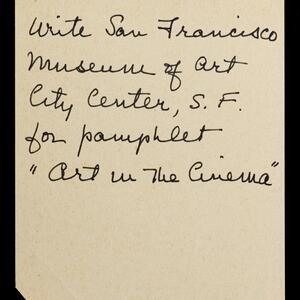 Write San Francisco
Museum of Art
City Center, S. F.
for pamphlet
"Art in The Cinema"